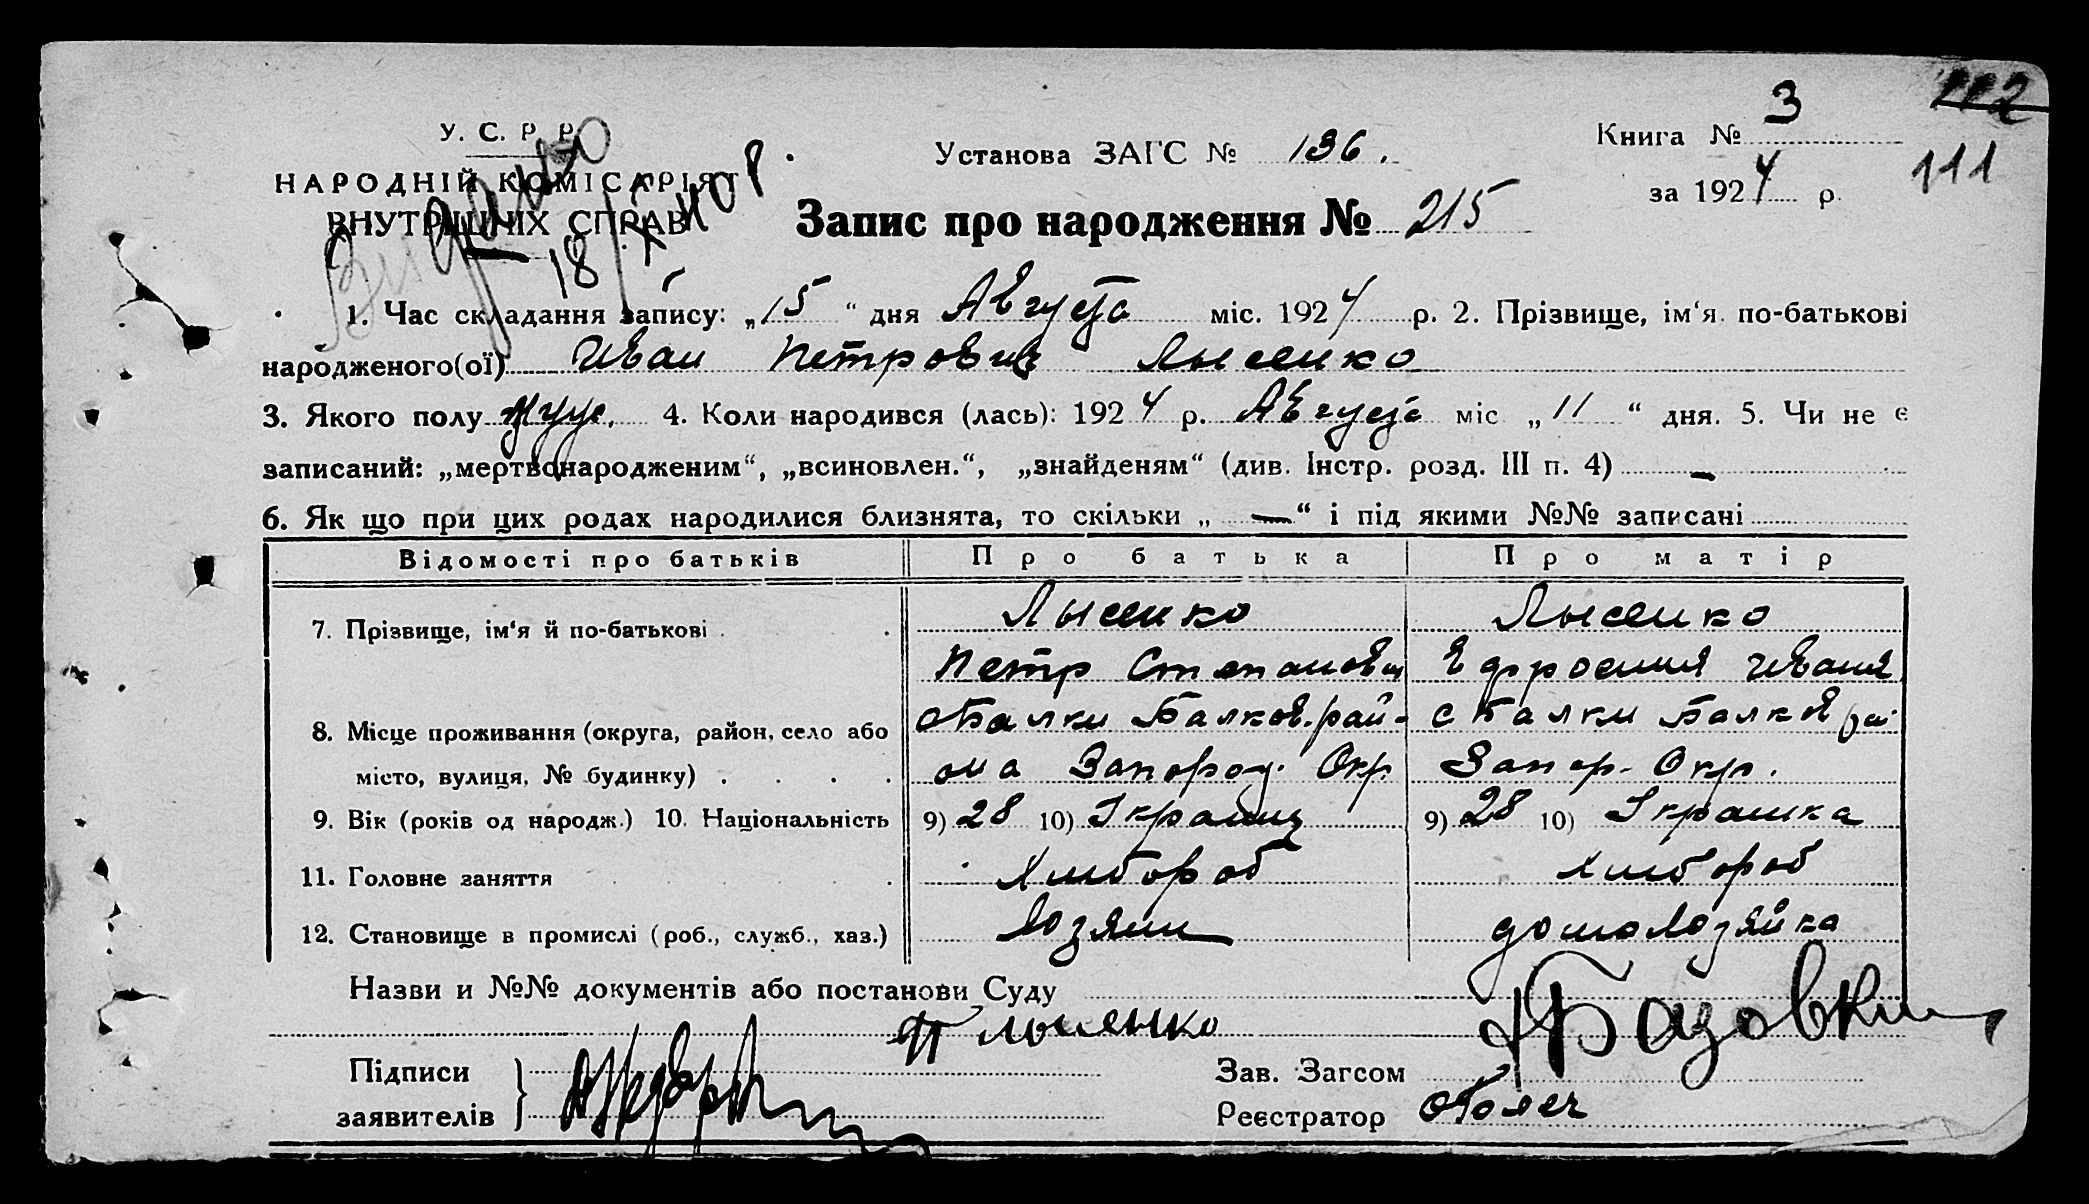 У. С. Р. Р.
НАРОДНІЙ КОМІСАРІЯТ
ВНУТРІШНІХ СПРАВ
Установа ЗАГС № 136.
Книга № 3
112
за 1924 р.
111
Запис про народження № 215
1. Час складання запису: „15“ дня Августа міс. 1924 р. 2. Прізвище, ім‘я по-батькові
народженого(ої) Иван Петрович Лысенко
3. Якого полу муж. 4. Коли народився (лась): 1924 р. Августа міс „11“ дня. 5. Чи не є
записаний: „мертвонародженим“, „всиновлен.“, „знайденям“ (див. Інстр. розд. III п. 4) –
6. Як що при цих родах народилися близнята, то скільки „ — “ і під якими №№ записані
Відомості про батьків Про батька Про матір
7. Прізвище, ім‘я й по-батькові Лысенко Лысенко
Петр Степанович Ефросиния Иван
8. Місце проживання (округа, район, село або с Балки Балков. рай- с Балки Балков
місто, вулиця, № будинку) она Запорож. Окр. Запор. Окр.
9. Вік (років од народж.) 10. Національність 9) 28 10) Украинц 9) 28 10) Украинка
11. Головне заняття Хлибороб хлибороб
12. Становище в промислі (роб., служб., хаз.) Хозяин домохозяйка
Назви и №№ документів або постанови Суду
П Лысенко
Підписи
заявителів
Зав. Загсом
Реєстратор